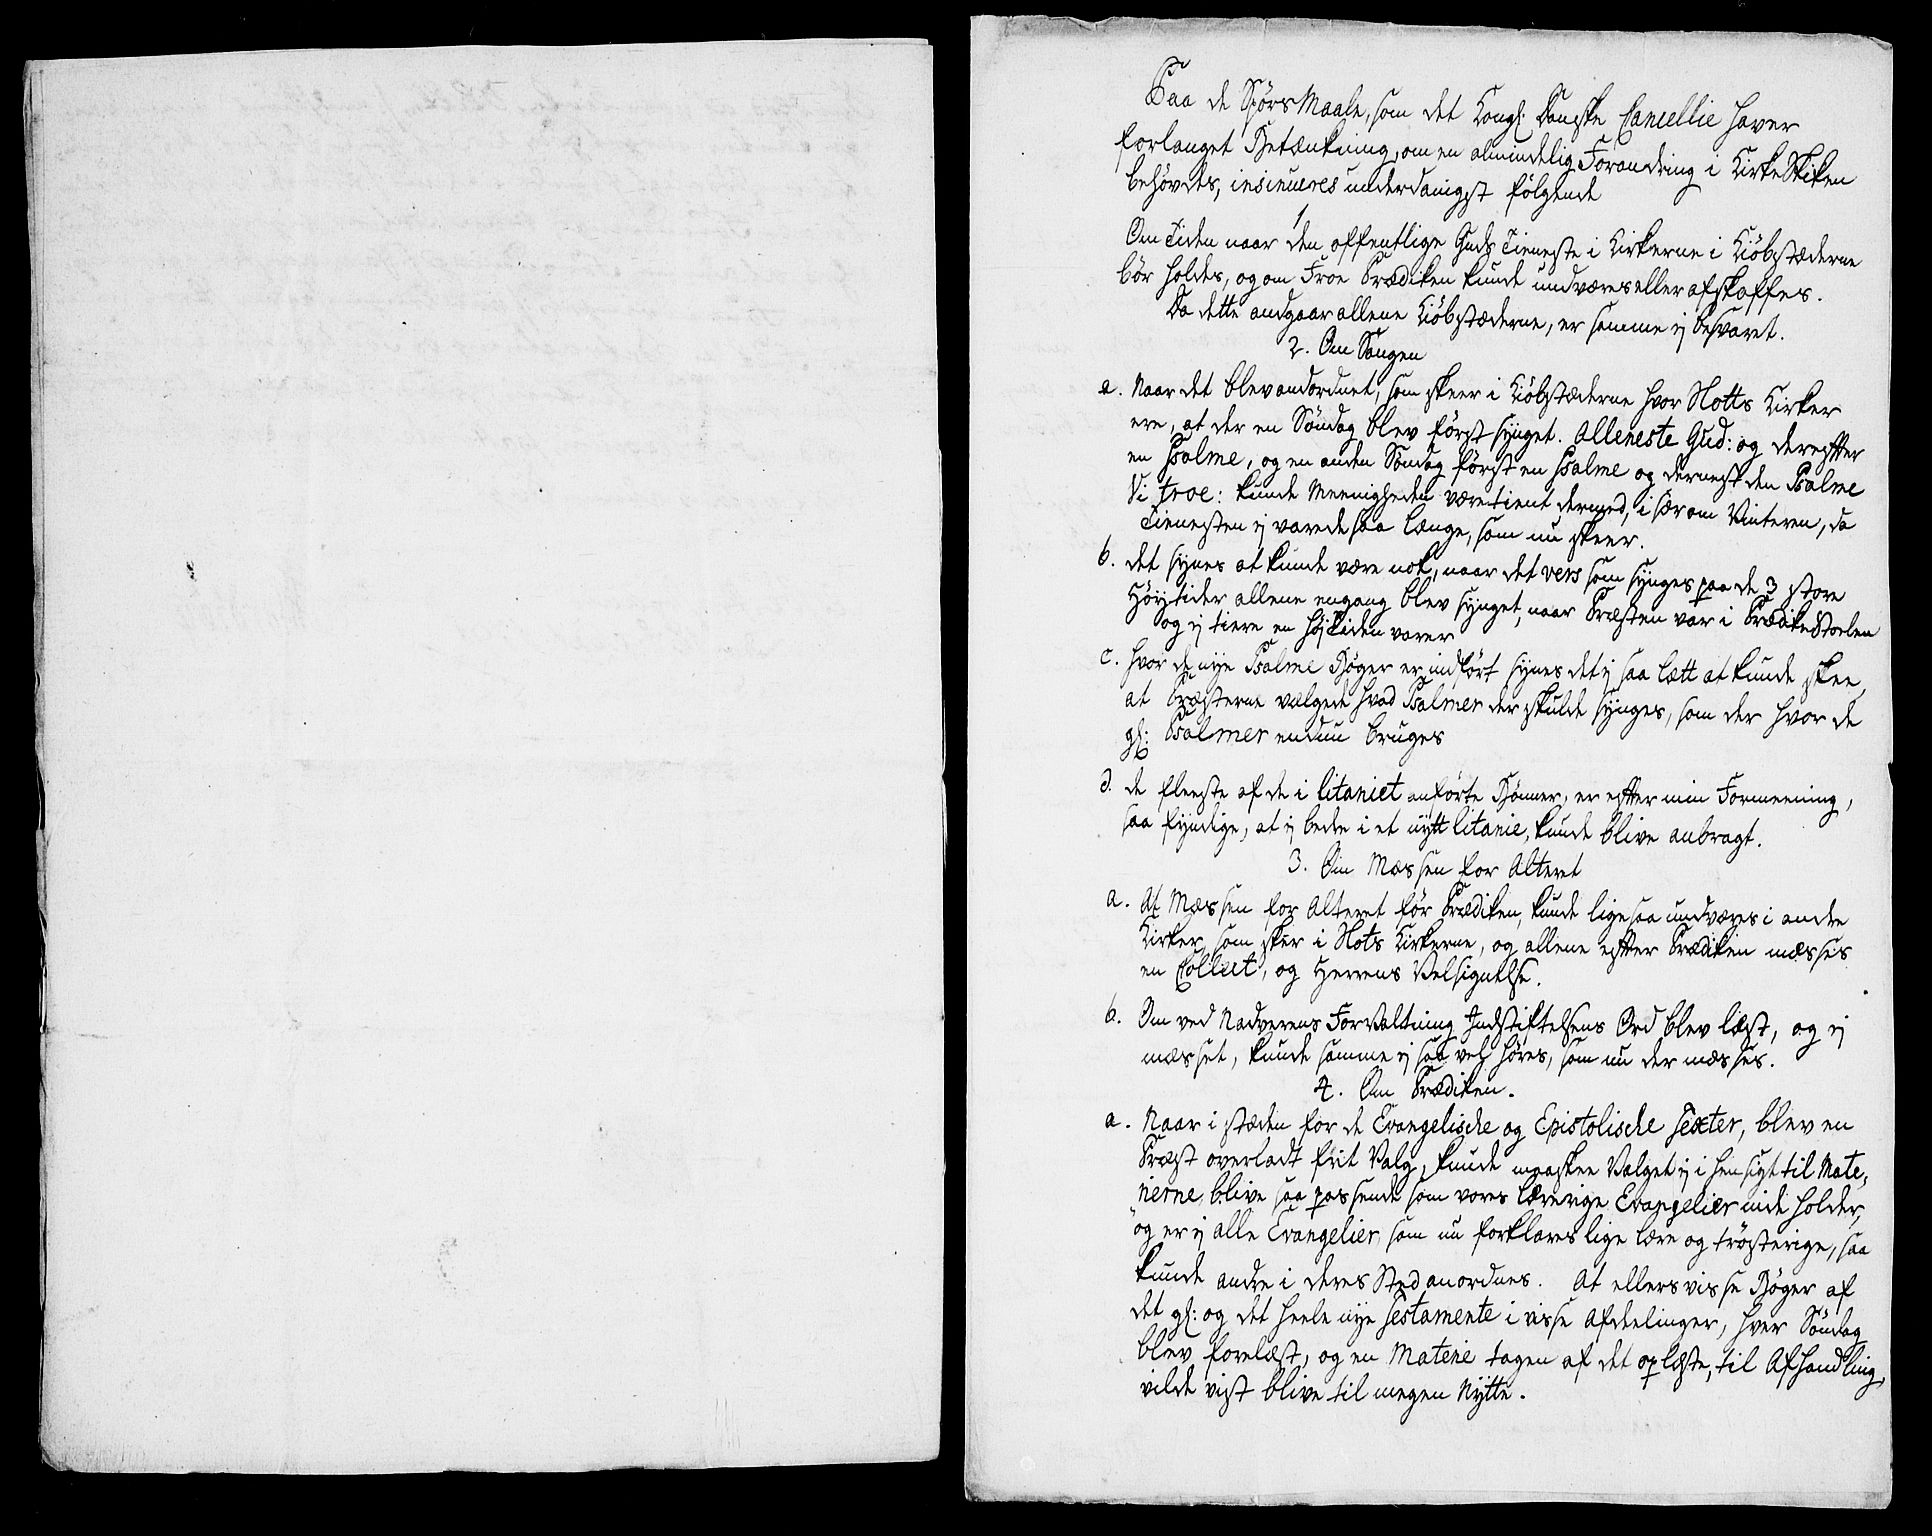 Paa de Spørs Maale, som det Kongl: Danske Cancellie haver
forlanget Betænkning, om en almindelig Forandring i Kirke Skiken
behövdes, insinueres underdanigst følgende
1
Om Tiden naar den offentlige Guds Tieneste i Kirkerne i Kiöbstæderne
bör holdes, og om Froe Prædiken kunde undværes eller afskaffes.
Da dette andgaar allene Kiöbstæderne, er samme ej besvaret.
2. Om Sangen
a. Naar det blev andordnet, som skeer i Kiöbstæderne hvor Slotts Kirker
ere, at der en Söndag blev först synget. Alleneste Gud: og derefter
en Psalme, og en anden Söndag först en Psalme og dernest den Psalme
Vi troe: kunde Meenigheden være tient dermed, i sær om Vinteren, da
Tienesten ej varede saa længe, som nu skeer.
b. det synes at kunde være nok, naar det vers som synges paa de 3 store
Höytider allene engang blev synget, naar Præsten var i Prædike Stoelen
og ej tiere en Höjtiden varer
c. hvor de nye Psalme Böger er indfört synes det ej saa lætt at kunde skee,
at Præsterne vælgede hvad Psalmer der skulde synges, som der hvor de
gl: Psalmer endnu bruges
d. de fleeste af de i litaniet anförte Bönner, er efter min Formeening,
saa fyndige, at ej bedre i et nytt litanie, kunde blive anbragt.
3. Om Messen for Alteret
a. At Messen for Alteret för Prædiken, kunde ligesaa undværes i andre
Kirker, som sker i Slots Kirkerne, og allene efter Prædiken messes
en Collect, og Herrens Velsignelse.
b. Om ved Nadverens Forvaltning Indstiftelsens Ord blev læst, og ej
messet, kunde samme ej saa vel höres, som nu der messes.
4. Om Prædiken.
a. Naar i stæden for de Evangelische og Epistolische Texter, blev en
Præst overladt frit Valg, kunde maaskee Valget ej i hensigt til Mate,
rierne blive saa passende som vores lærerige Evangelier inde holder,
og er ej alle Evangelier, som nu forklares lige lære og tröisterige, saa
kunde andre i deres Sted anordnes. At ellers visse Böger af
det gl: og det heele nye Testamente i visse Afdeelinger, hver Söndag
blev forelæst, og en Materie tagen af det oplæste, til Afhandling,
vilde vist blive til megen Nytte.